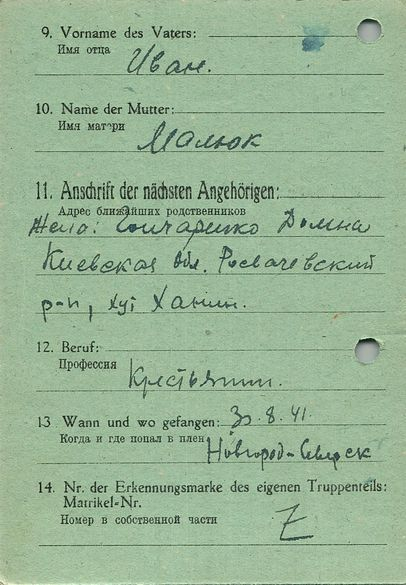 9. Vorname des Vaters:
Имя отца
Иван.
10. Name der Mutter:
Имя матери
Малюк
11. Anschrift der nächsten Angehörigen:
Адрес ближайших родственников
Жена: Гончаренко Домна
Киевская обл. Розважевский
р-н, хут Ханин.
12. Beruf:
Профессия
Крестьянин.
13 Wann und wo gefangen: 30.8.41.
Когда и где попал в плен
Новгород-Северск
14. Nr. der Erkennungsmarke des eigenen Truppenteils:
Matrikel-Nr.
Номер в собственной части